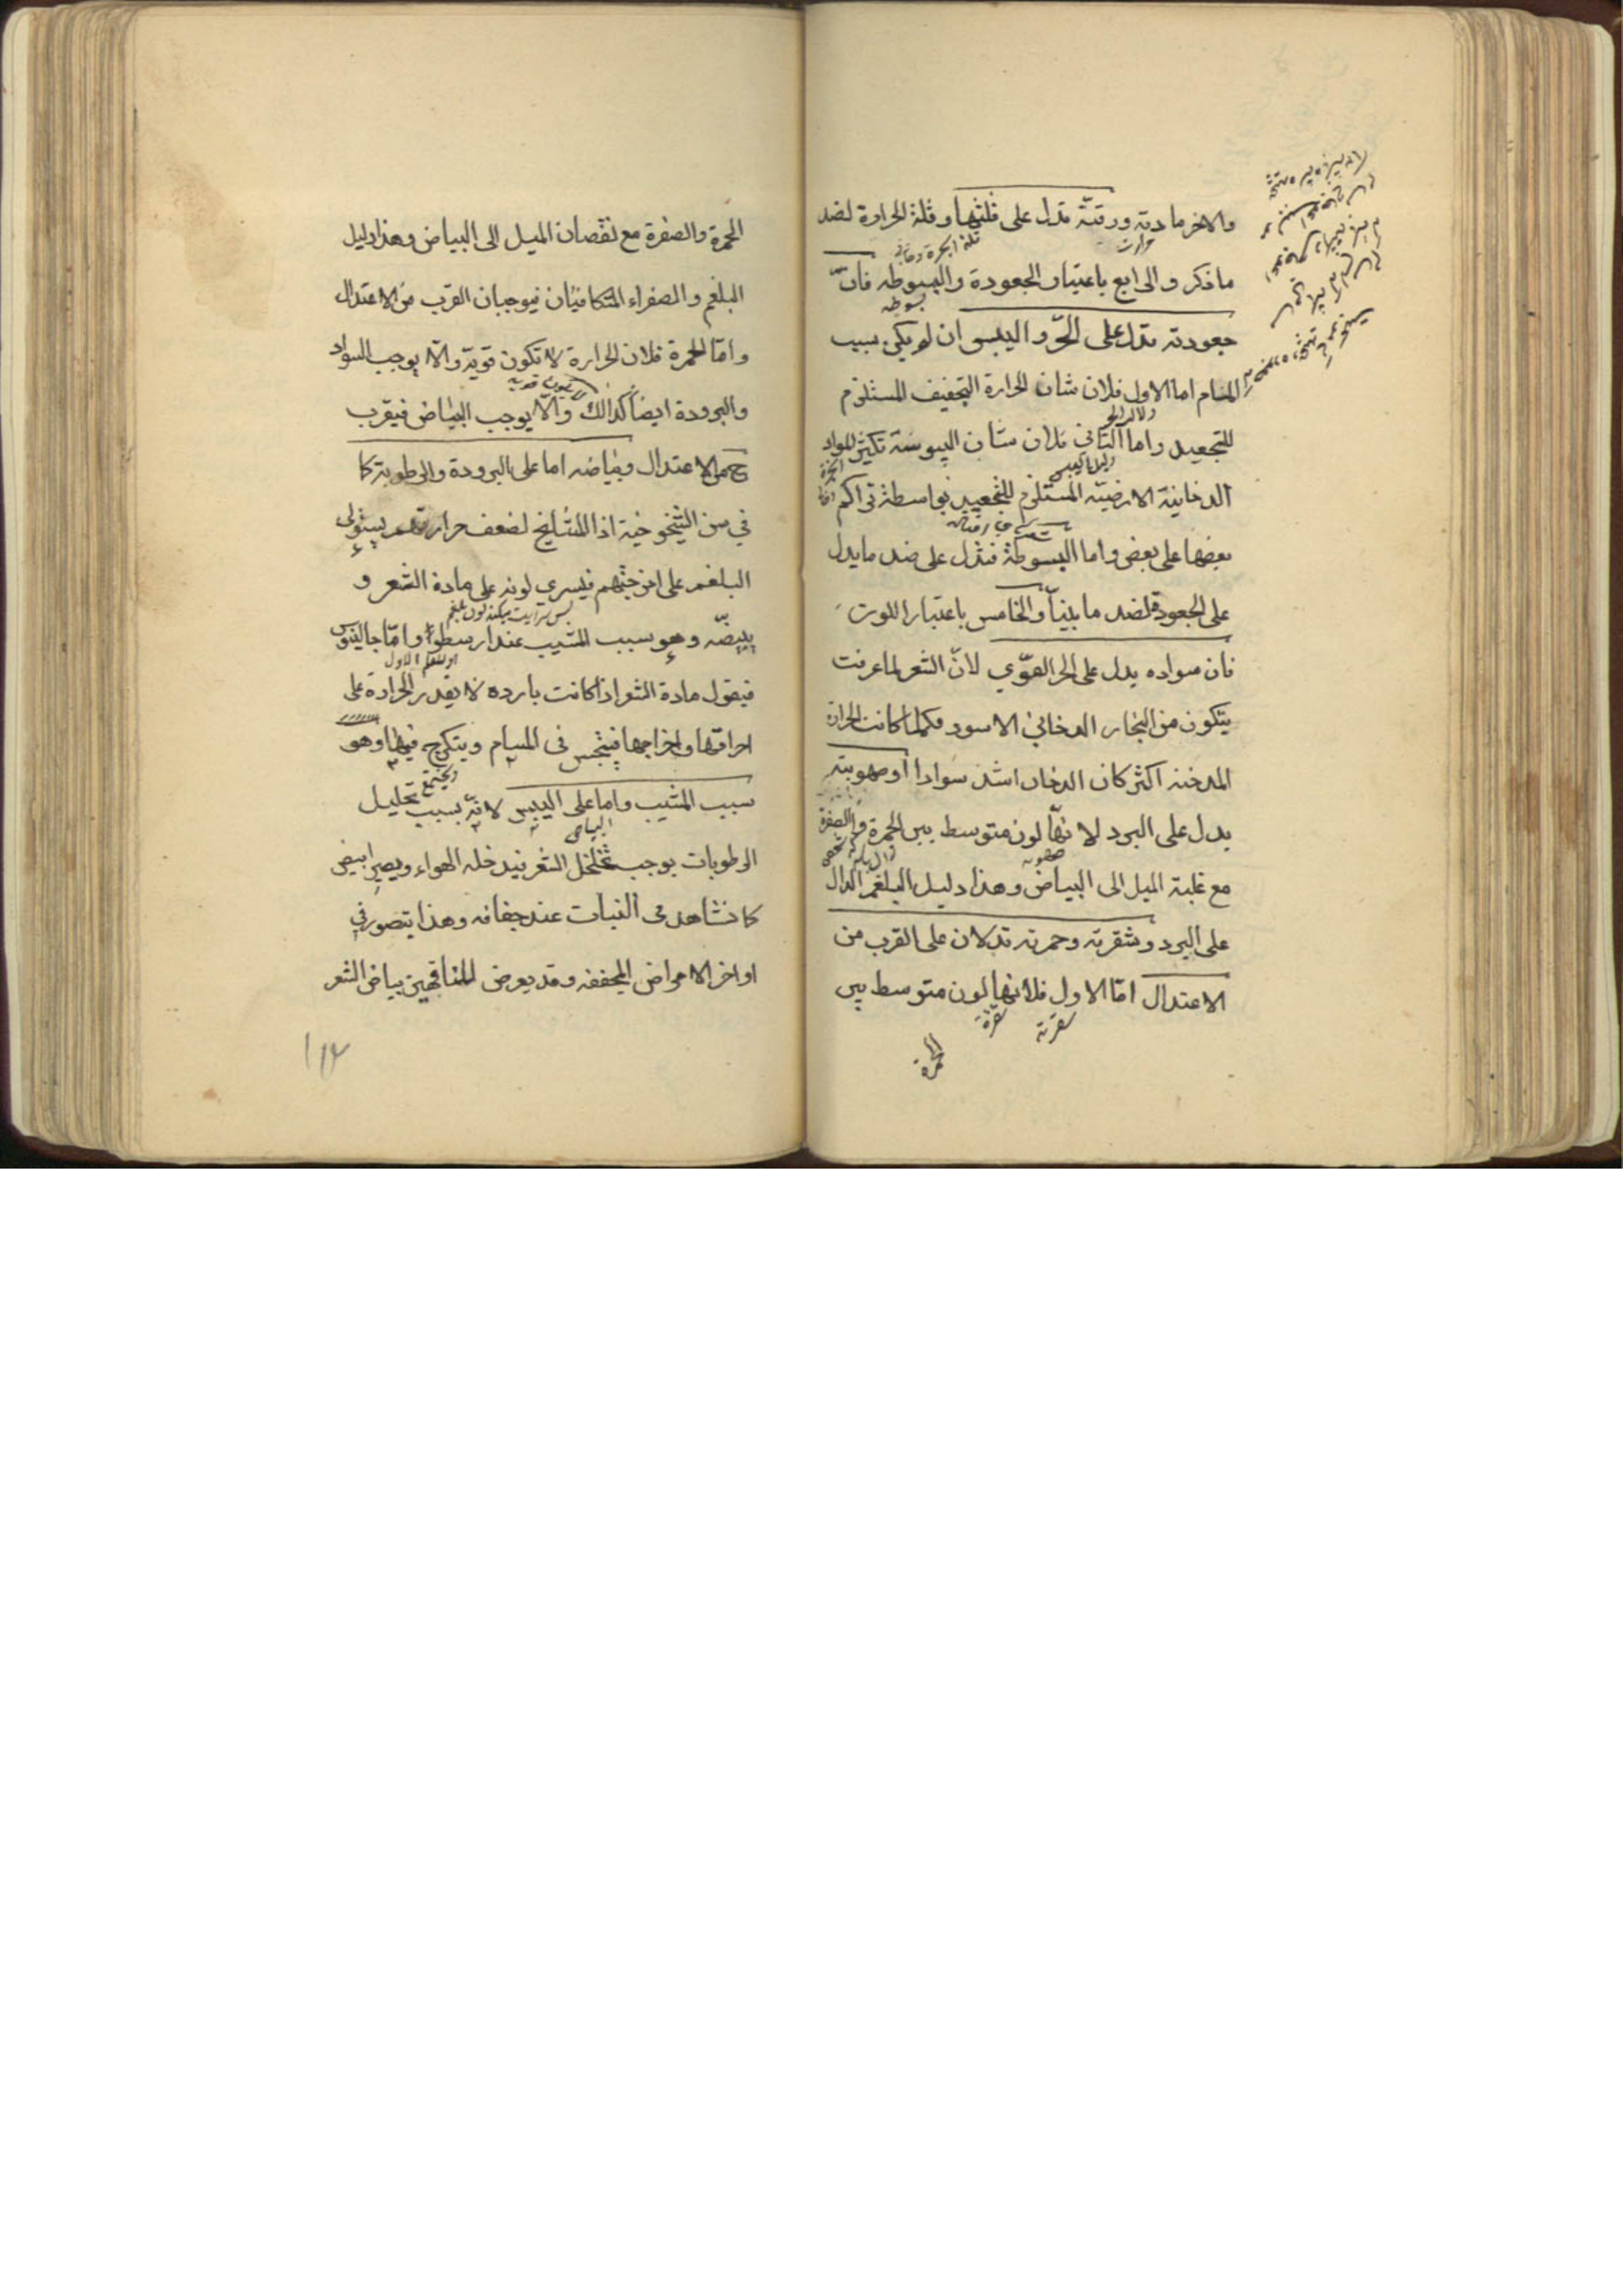 والاخر مادته ورقته تدل على قلتها وقلة الحرارة لضد
ما ذكر والرابع باعتبار الجعودة والبسوطه فانّ
جعودته تدل على الحرّ واليبس ان لم يكن بسبب
المسام اما الاول فلان شان الحرارة التجفيف المستلزم
للتجعيد واما الثاني فلان شان اليبوسة تكثير المواد
الدخانية الارضيّه المستلزم للتجعيد بواسطة تراكم
بعضها على بعض واما البسوطة فتدل على ضد ما يدل
على الجعودة لضد ما بيناّ والخامس باعتبار اللون
فان سواده يدل على الحر القوّي لانّ الشعر لما عرفت
يتكون من البخار الدخاني الاسود فكلما كانت الحرارة
المدخنه اكثر كان الدخان اشد سوادا وصهوبته
يدل على البرد لانهّا لون متوسط بين الحمرة والصفرة
مع غلبة الميل الى البياض وهذا دليل البلغم الدال
على البرد وشقرته وحمرته تدلان على القرب من
الاعتدال امّا الاول فلانها لون متوسط بين
شقرته
الحمرة
الحمرة والصفرة مع نقصان الميل الى البياض وهذا دليل
البلغم والصفراء المتكافيان فيوجبان القرب من الاعتدال
وامّا الحمرة فلان الحرارة لا تكون قويّة والّا يوجب السواد
والبرودة ايضا كذالك والّا يوجب البياض فيقرب
ح من الاعتدال وبياضه اما على البرودة والرطوبة كما
في سن الشيخوخية اذ المشايخ لضعف حرارتهم يستولى
البلغم على امزجتهم فيسري لونه على مادة الشعر و
يبيضّه وهو سبب الشيب عند ارسطو وامّا جالينوس
فيقول مادة الشعر اذا كانت بارده لا يقدر الحرارة على
احراقها واخراجها فيحتبس في المسام ويتكرج فيها وهو
سبب الشيب واما على اليبس لانّه بسبب تحليل
الرطوبات يوجب تخلخل الشعر فيدخله الهواء ويصير ابيض
كما نشاهد في النبات عند جفافه وهذا يتصور في
اواخر الامراض المجففه وقد يعرض للناقهين بياض الشعر